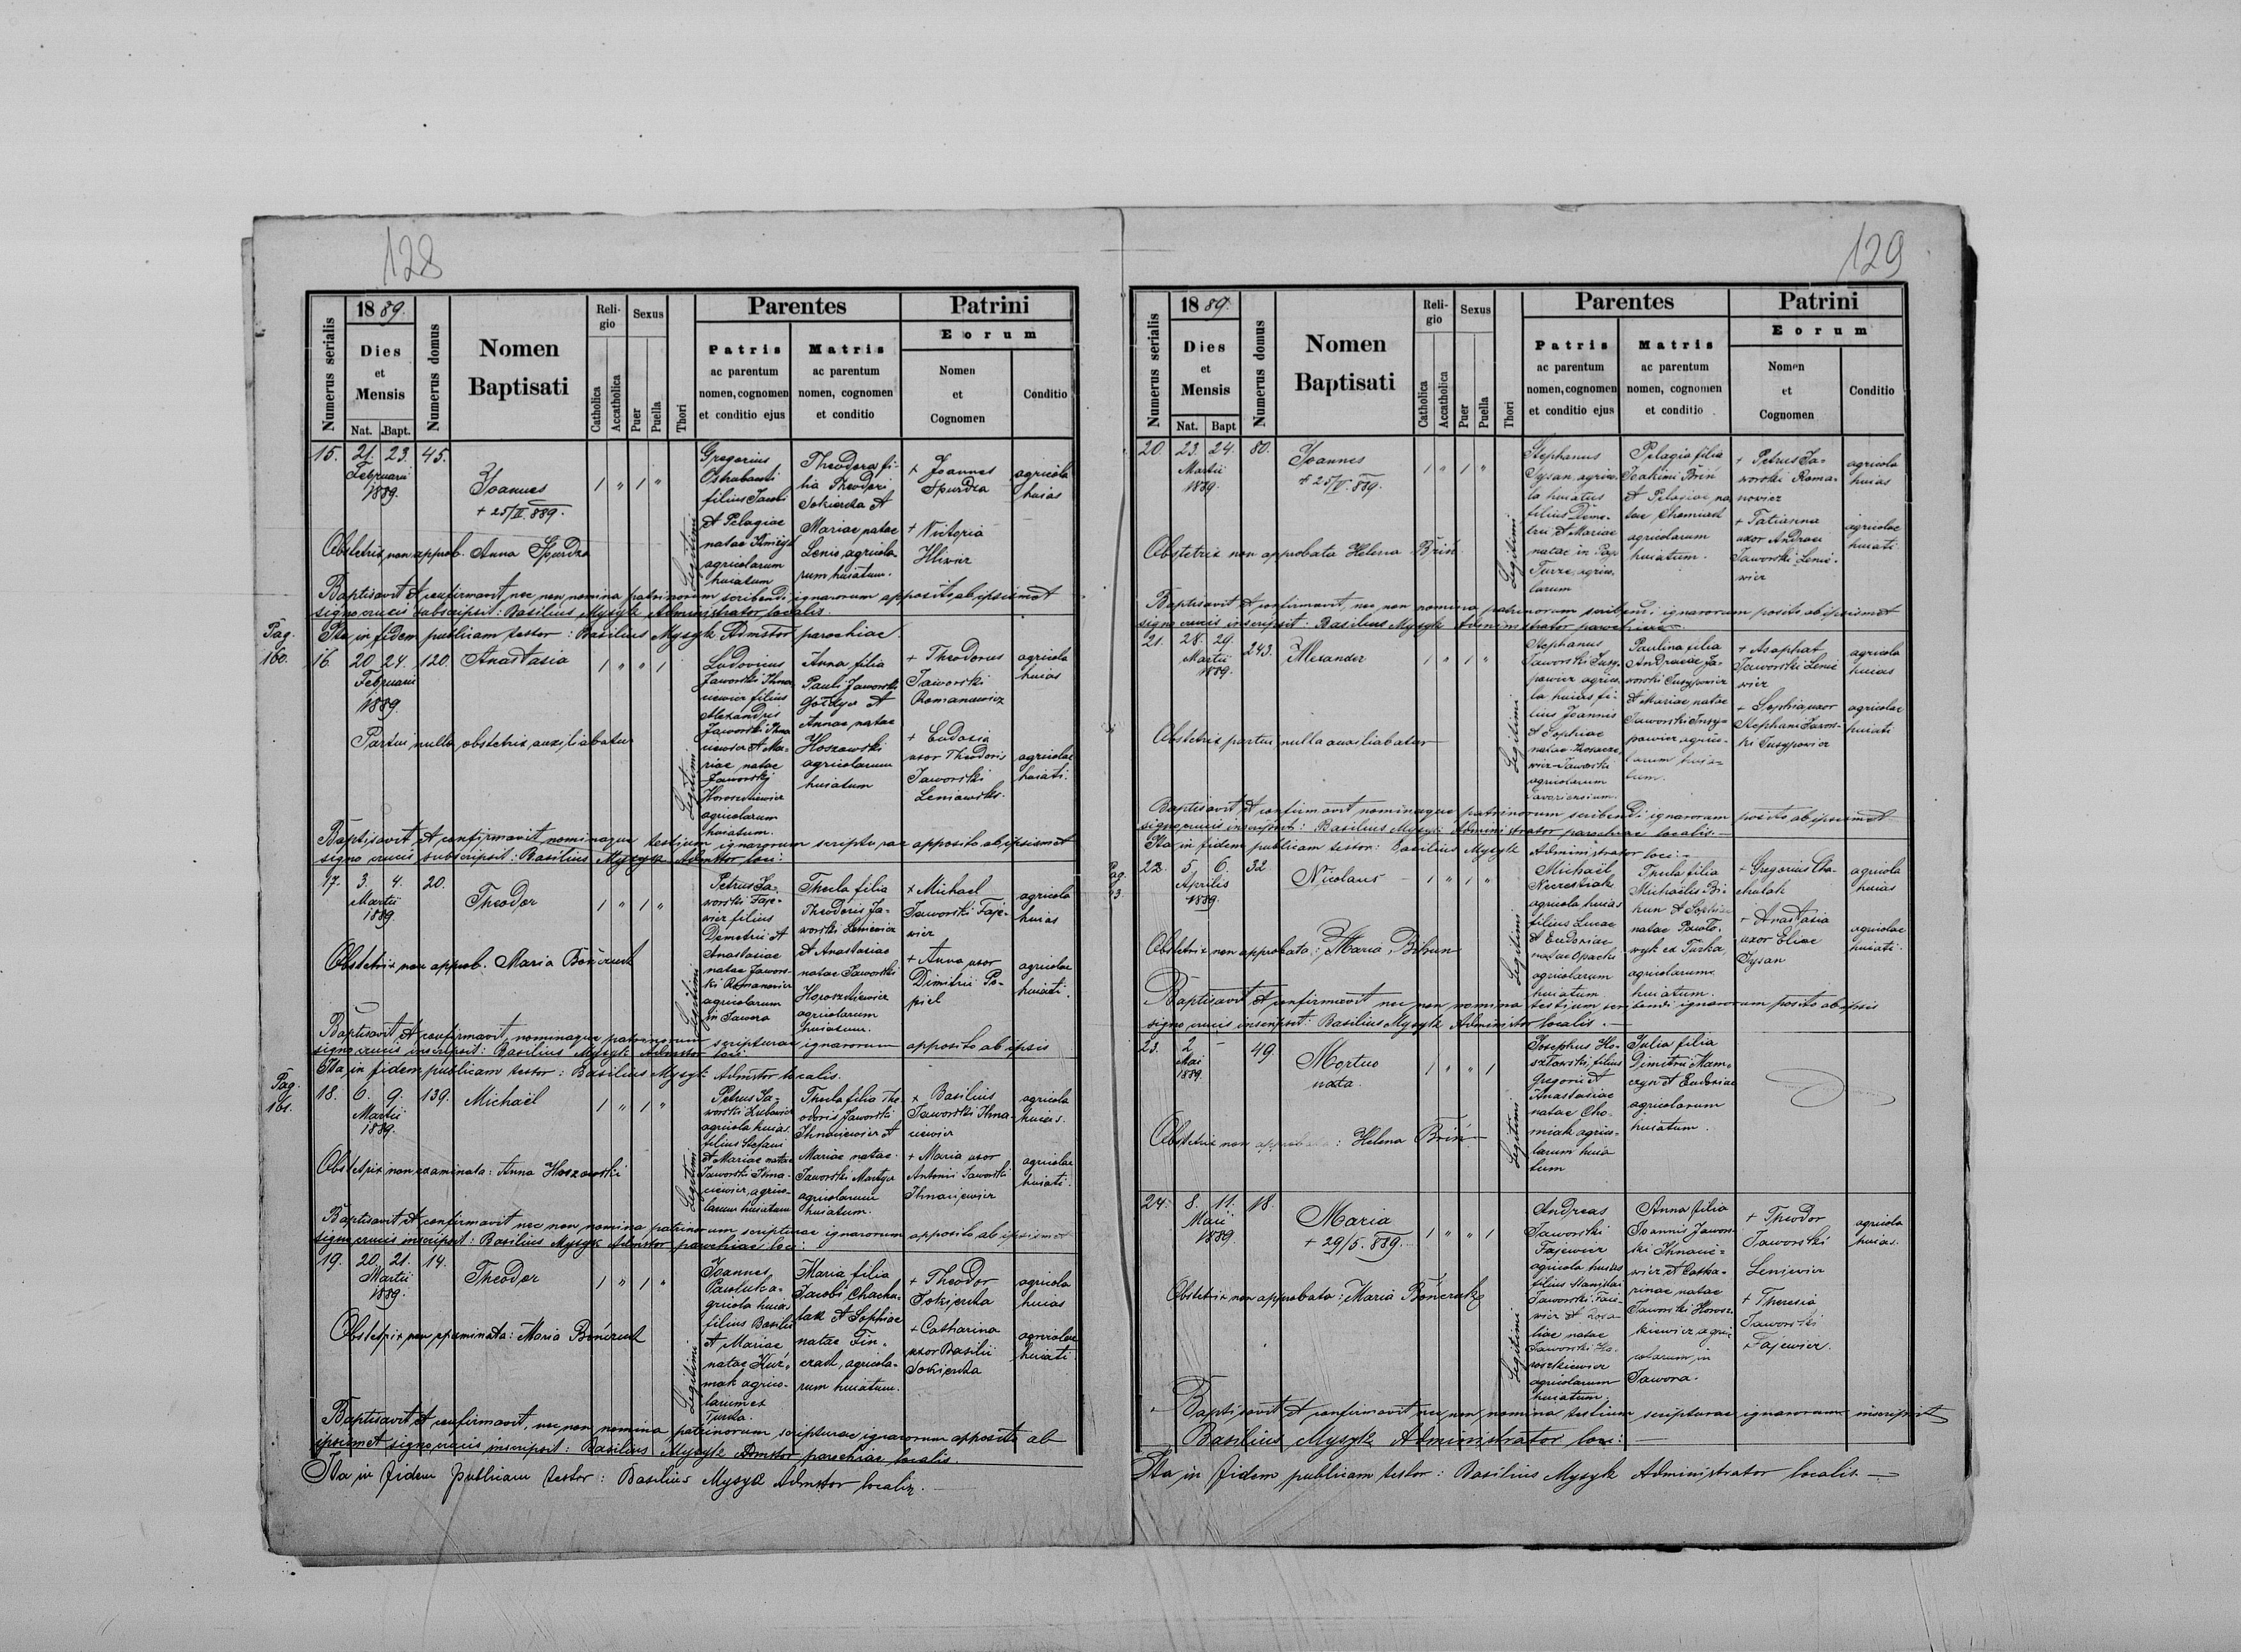 128
Numerus serialis
1889.
Dies
et
Mensis
Nat. Bapt.
Numerus domus
Nomen
Baptisati
Religio
Catholica
Accatholica
Sexus
Puer
Puella
Thori
Parentes
Patris
ac parentum
nomen, cognomen
et conditio ejus
Matris
ac parentum
nomen, cognomen
et conditio
Patrini
Eorum
Nomen
et
Cognomen
Conditio
15. 21. 23. 45.
Februarii
1889.
Joannes
+ 25/II. 889.
1 " 1 "
Legitimi
Gregorius
filius Jacobi
et Pelagiae
natae
agricolarum
huiatum
Theodora fi-
lia Theodori
Mariae natae
Lenio, agricola-
rum huiatum.
+ Joannes
Spurdza
agricola
huias
+ Victoria
Obstetrix non approb. Anna Spurdza
Baptisavit et confirmavit, nec non nomina patrinorum scribendi ignarorum apposito ab ipsismet
signo crucis subscripsit: Basilius Mysyk Administrator localis.
Ita in fidem publicam testor: Basilius Mysyk Admstor parochiae.
Pag.
160.
16. 20. 24. 120. Anastasia
Februarii
1889.
1 " " 1
Legitimi
Ludovicus
Jaworski Ihna-
ciewicz filius
Alexandri
Jaworski Ihna-
ciewicz et Ma-
riae natae
Jaworskij
Horoszkiewicz
agricolarum
huiatum.
Anna filia
Pauli Jaworski
et
Annae natae
Hoszowski
agricolarum
huiatum
+ Theodorus
Jaworski
Romanowicz
agricola
huias
+ Eudoxia
uxor Theodoris
Jaworski
agricolae
huiati.
Partui nulla obstetrix auxiliabatur
Baptisavit et confirmavit nominaque testium ignarorum scripturae apposito ab ipsismet
signo crucis subscripsit: Basilius Mysyk Admstor loci:
17. 3. 4. 20.
Martii
1889
Theodor
1 " 1 "
Legitimi
Petrus Ja-
worski Faje-
wicz filius
Demetrii et
Anastasiae
natae Jawors-
ki Romanowicz
agricolarum
in Jawora
Thecla filia
Theodoris Ja-
worski Leniewicz
et Anastasiae
natae Jaworski
Horoszkiewicz
agricolarum
huiatum.
+ Michael
Jaworski Faje-
wicz
agricola
huias
+ Anna uxor
Dimitrii Po-
piel
agricolae
huiati.
Obstetrix non approb. Maria Bonczuk
Baptisavit et confirmavit, nominaque patrinorum scripturae ignarorum apposito ab ipsis
signo crucis inscripsit: Basilius Mysyk Admstor loci:
Ita in fidem publicam testor: Basilius Mysyk Admstor localis.
Pag.
161.
18. 6. 9. 139. Michaël
Martii
1889.
1 " 1 "
Legitimi
Petrus Ja-
worski
agricola huias
filius Stefani
et Mariae natae
Jaworski Ihna-
ciewicz, agrico-
larum huiatum
Thecla filia The-
odoris Jaworski
Ihnaciewicz et
Mariae natae
Jaworski
agricolarum
huiatum.
+ Basilius
Jaworski Ihna-
ciewicz
agricola
huias.
+ Maria uxor
Antonii Jaworski
Ihnaciewicz
agricolae
huiati.
Obstetrix non examinata: Anna Hoszowski
Baptisavit et confirmavit nec non nomina patrinorum scripturae ignarorum apposito ab ipsismet
signo crucis inscripsit: Basilius Mysyk Admstor parochiae loci:
19. 20. 21. 14.
Martii
1889.
Theodor
1 " 1 "
Legitimi
Joannes
Pawluk a-
gricola huias
filius Basilii
et Mariae
natae
agrico-
larum ex
Turka.
Maria filia
Jacobi Chacha-
lak et Sophiae
natae Fin-
czak, agricola-
rum huiatum.
+ Theodor
agricola
huias
+ Catharina
uxor Basilii
agricolae
huiati
Obstetrix non examinata: Maria Bonczuk
Baptisavit et confirmavit, nec non nomina patrinorum scripturae ignarorum apposito ab
ipsismet signo crucis inscripsit: Basilius Mysyk Admstor parochiae localis.
Ita in fidem publicam testor: Basilius Mysyk Admstor localis.
129
Numerus serialis
1889.
Dies
et
Mensis
Nat. Bapt
Numerus domus
Nomen
Baptisati
Religio
Catholica
Accatholica
Sexus
Puer
Puella
Thori
Parentes
Patris
ac parentum
nomen, cognomen
et conditio ejus
Matris
ac parentum
nomen, cognomen
et conditio
Patrini
Eorum
Nomen
et
Cognomen
Conditio
20. 23. 24. 80.
Martii
1889.
Joannes
+ 25/IV. 889.
1 " 1 "
Legitimi
Stephanus
Tysan, agrico-
la huiatus
filius Deme-
trii et Mariae
natae in
Turze, agrico-
larum
Pelagia filia
Joakimi Briń
et Pelagiae na-
tae Chomiak
agricolarum
huiatum.
+ Petrus Ja-
worski Roma-
nowicz
agricola
huias
+ Tatianna
uxor Andreae
Jaworski Lenie-
wicz
agricolae
huiati.
Obstetrix non approbata Helena Briń
Baptisavit et confirmavit, nec non nomina patrinorum scribendi ignarorum posito ab ipsismet
signo crucis inscripsit: Basilius Mysyk Administrator parochiae.
21. 28. 29. 243. Alexander
Martii
1889.
1 " 1 "
Legitimi
Stephanus
Jaworski Jusy-
powicz agrico-
la huias fi-
lius Joannis
et Sophiae
natae
Jaworski
agricolarum
Paulina filia
Andreae Ja-
worski Jusypowicz
et Mariae natae
Jaworski Jusy-
powicz agrico-
larum huia-
tum.
+ Asaphat
Jaworski Lenie-
wicz
agricola
huias
+ Sophia uxor
Stephani Jawors-
ki Jusypowicz
agricolae
huiati
Obstetrix partui nulla auxiliabatur
Baptisavit et confirmavit nominaque patrinorum scribendi ignarorum posito ab ipsismet
signo crucis inscripsit: Basilius Mysyk Administrator parochiae localis.
Ita in fidem publicam testor: Basilius Mysyk Administrator loci:
Pag.
22. 5. 6. 32 Nicolaus
Aprilis
1889.
1 " 1 "
Legitimi
Michaël
agricola huias
filius Lucae
et Eudoxiae
natae Opacki
agricolarum
huiatum.
Thecla filia
Michaëlis Bi-
hun et Sophiae
natae Pawło-
wyk ex Turka,
agricolarum
huiatum.
+ Gregorius Cha-
chalak
agricola
huias
+ Anastasia
uxor Eliae
Tysan
agricolae
huiati.
Obstetrix non approbata: Maria Bihun
Baptisavit et confirmavit nec non nomina testium scribendi ignarorum posito ab ipsis
signo crucis inscripsit: Basilius Mysyk Administor localis.
23. 2 - 49.
Mai
1889.
Mortuo
nata.
1 " " 1
Legitimi
Josephus Ho-
szowski, filius
Gregorii et
Anastasiae
natae Cho-
miak agrico-
larum huia-
tum
Julia filia
Dimitrii Mam-
czyn et Eudoxiae
agricolarum
huiatum.
Obstetrix non approbata: Helena Briń
24. 8. 11. 18.
Maii
1889.
Maria
+ 29/5. 889.
1 " " 1
Legitimi
Andreas
Jaworski
Fajewicz
agricola huias
filius Stanislai
Jaworski Faje-
wicz et Rosa-
liae natae
Jaworski Ho-
roszkiewicz
agricolarum
huiatum.
Anna filia
Joannis Jawors-
ki Ihnacie-
wicz et Catha-
rinae natae
Jaworski Horosz-
kiewicz agri-
colarum in
Jawora.
+ Theodor
Jaworski
Leniewicz
agricola
huias.
+ Theresia
Jaworski
Fajewicz.
Obstetrix non approbata: Maria Bonczuk
Baptisavit et confirmavit nec non nomina testium scripturae ignarorum inscripsit
Basilius Mysyk Administrator loci:
Ita in fidem publicam testor: Basilius Mysyk Administrator localis.